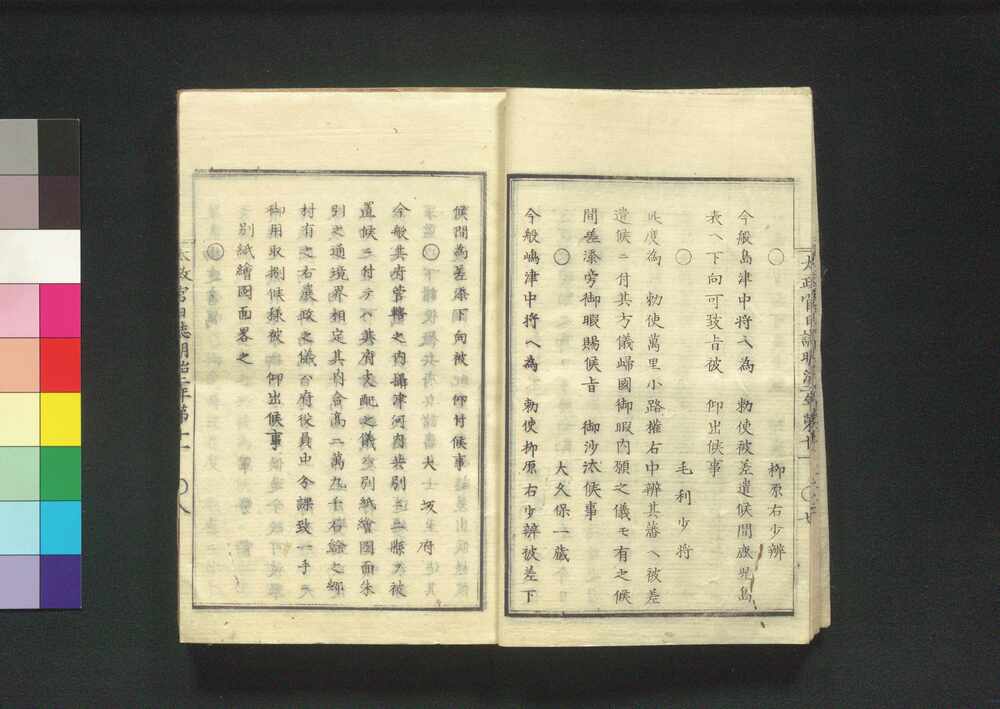 ○ 柳原右少辨
今般島津中将へ為 勅使被差遣候間鹿児島
表へ下向可致旨被 仰出候事
○ 毛利少将
此度為 勅使萬里小路權右中辨其藩へ被差
遣候ニ付其方儀歸國御暇内願之儀モ有之候
間差添旁御暇賜候旨 御沙汰候事
○ 大久保一蔵
今般嶋津中将へ為 勅使柳原右少辨被差下
候間為差添下向被 仰付候事
○ 大坂府
今般其府管轄之内攝津河内共別ニ二縣 被
置候ニ付テハ其府支配之儀 別紙繪圖面朱
引之通境界相定其内舎高二萬九千石餘之郷
村有之右農政之儀 府役員中令課致一手
御用取捌候様被 仰出候事
別紙繪圖面畧之
○
太政官日誌明治二年第十一 ○八